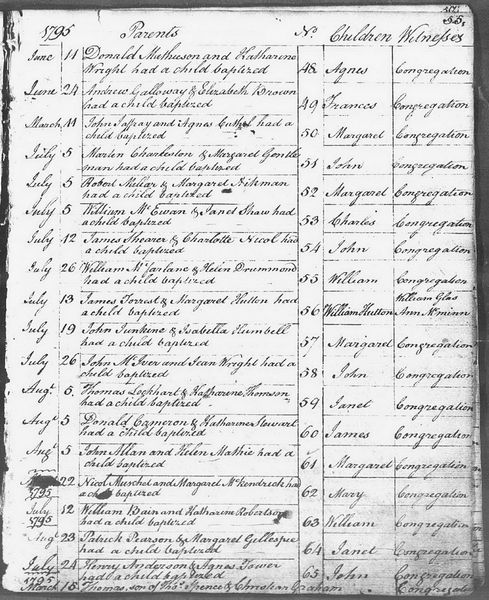 1795 Parents No. Children Witnesses
55.
June 11 Donald Mathuson and Katharine
Wright had a child baptized 48 Agnes Congregation
June 24 Andrew Galloway & Elizabeth Brown
had a child baptized 49 Frances Congregation
March 11 John Jaffray and Agnes had a
child baptized 50 Margaret Congregation
July 5 Martin Charleston & Margaret Gentle
man had a child baptized 51 John Congregation
July 5 Robert Millar & Margaret Aikman
had a child baptized 52 Margaret Congregation
July 5 William McEwan & Janet Shaw had
a child baptized 53 Charles Congregation
July 12 James Shearer & Charlotte Nicol had
a child baptized 54 John Congregation
July 26 William McFarlane & Helen Drummond
had a child baptized 55 William Congregation
William Glas
July 13 James Forrest & Margaret Hutton had
a child baptized 56 William Hutton Ann McMinn
July 19 John Junkine & Isabella Humbell
had a child baptized 57 Margaret Congregation
July 26 John McIver and Jean Wright had a
child baptized 58 John Congregation
Augt. 5 Thomas Lockhart & Katharine Thomson
had a child baptized 59 Janet Congregation
Augt. 5 Donald Cameron & Katharine Stewart
had a child baptized 60 James Congregation
Augt. 5 John Allan and Helen Mathie had a
child baptized 61 Margaret Congregation
22 Nicol Muschet and Margaret McKendrick had
1795 a child baptized 62 Mary Congregation
July 12 William Bain and Katharine Robertson
1795 had a child baptized 63 William Congregation
Augt 23 Patrick Pearson & Margaret Gillespie
had a child baptized 64 Janet Congregation
July 24 Henry Anderson & Agnes Tower
1795 had a child baptized 65 John Congregation
March 15 Thomas, son of Thos. Spence & Christian Graham Congregation